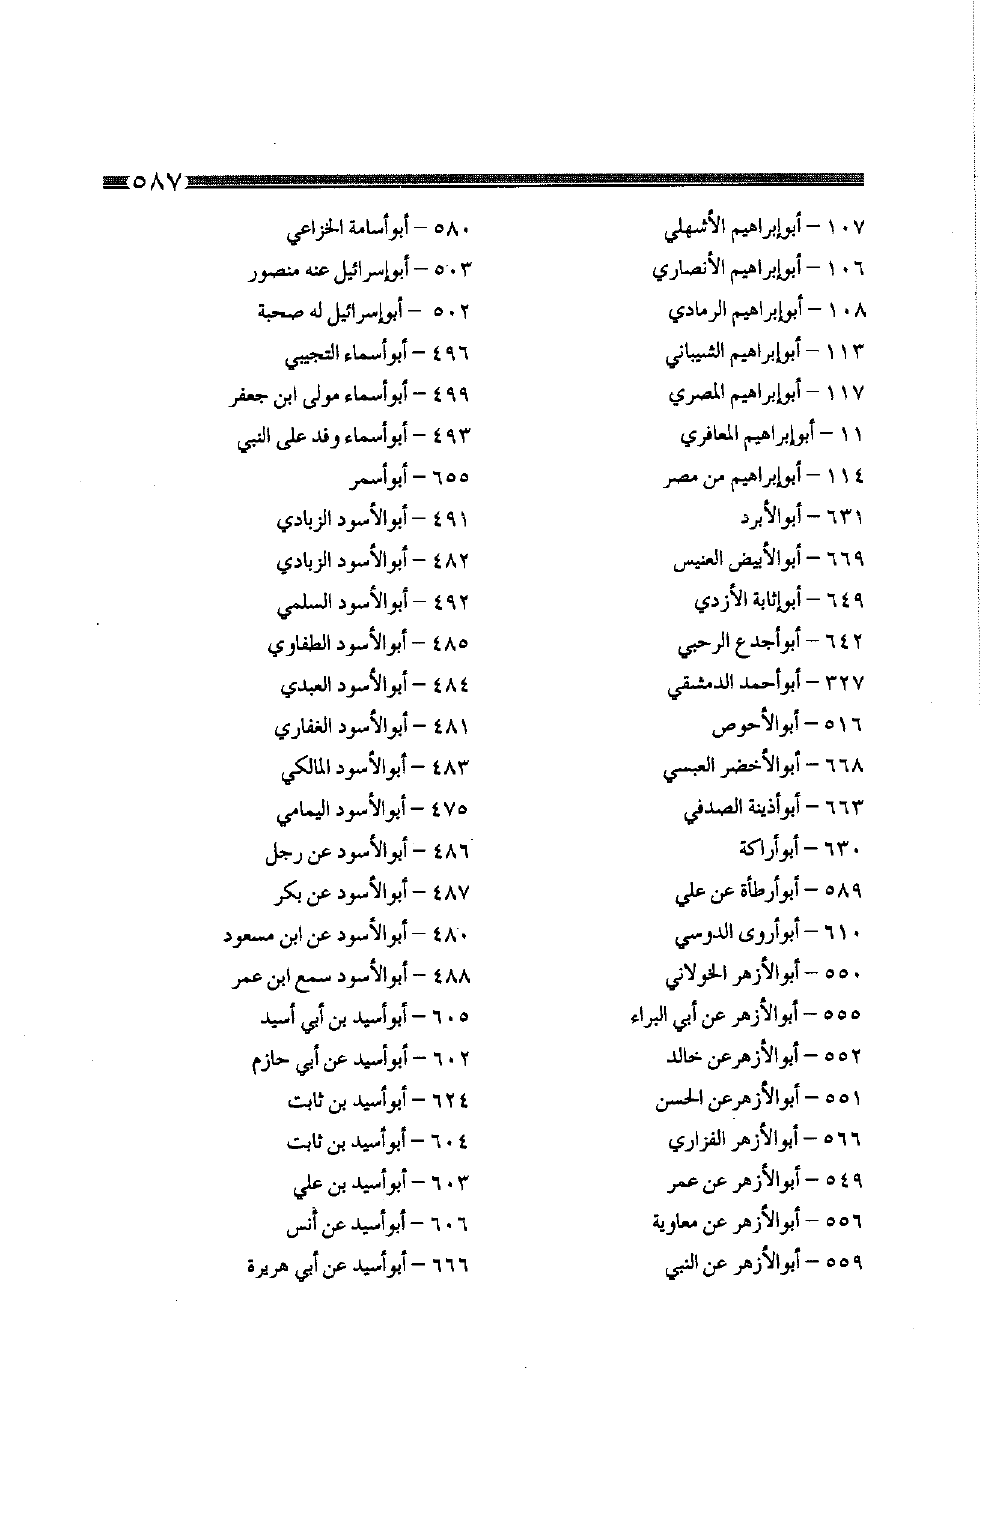 ٥٨٧
١٠٧ – أبوإبراهيم الأشهلي
١٠٦ – أبوإبراهيم الأنصاري
١٠٨ – أبوإبراهيم الرمادي
١١٣ – أبوإبراهيم الشيباني
١١٧ – أبوإبراهيم المصري
١١ – أبوإبراهيم المعافري
١١٤ – أبوإبراهيم من مصر
٦٣١ – أبوالأبرد
٦٦٩ – أبوالأبيض العنيس
٦٤٩ – أبوإثابة الأزدي
٦٤٢ – أبوأجدع الرحبي
٣٢٧ – أبوأحمد الدمشقي
٥١٦ – أبوالأحوص
٦٦٨ – أبوالأخضر العبسي
٦٦٣ – أبوأذينة الصدفي
٦٣٠ – أبوأراكة
٥٨٩ – أبوأرطأة عن علي
٦١٠ – أبوأروى الدوسي
٥٥٠ – أبوالأزهر الخولاني
٥٥٥ – أبوالأزهر عن أبي البراء
٥٥٢ – أبوالأزهرعن خالد
٥٥١ – أبوالأزهرعن الحسن
٥٦٦ – أبوالأزهر الفزاري
٥٤٩ – أبوالأزهر عن عمر
٥٥٦ – أبوالأزهر عن معاوية
٥٥٩ – أبوالأزهر عن النبي
٥٨٠ – أبوأسامة الخزاعي
٥٠٣ – أبوإسرائيل عنه منصور
٥٠٢ – أبوإسرائيل له صحبة
٤٩٦ – أبوأسماء التجيبي
٤٩٩ – أبوأسماء مولى ابن جعفر
٤٩٣ – أبوأسماء وفد على النبي
٦٥٥ – أبوأسمر
٤٩١ – أبوالأسود الزبادي
٤٨٢ – أبوالأسود الزبادي
٤٩٢ – أبوالأسود السلمي
٤٨٥ – أبوالأسود الطفاوي
٤٨٤ – أبوالأسود العبدي
٤٨١ – أبوالأسود الغفاري
٤٨٣ – أبوالأسود المالكي
٤٧٥ – أبوالأسود اليمامي
٤٨٦ – أبوالأسود عن رجل
٤٨٧ – أبوالأسود عن بكر
٤٨٠ – أبوالأسود عن ابن مسعود
٤٨٨ – أبوالأسود سمع ابن عمر
٦٠٥ – أبوأسيد بن أبي أسيد
٦٠٢ – أبوأسيد عن أبي حازم
٦٢٤ – أبوأسيد بن ثابت
٦٠٤ – أبوأسيد بن ثابت
٦٠٣ – أبوأسيد بن علي
٦٠٦ – أبوأسيد عن أنس
٦٦٦ – أبوأسيد عن أبي هريرة